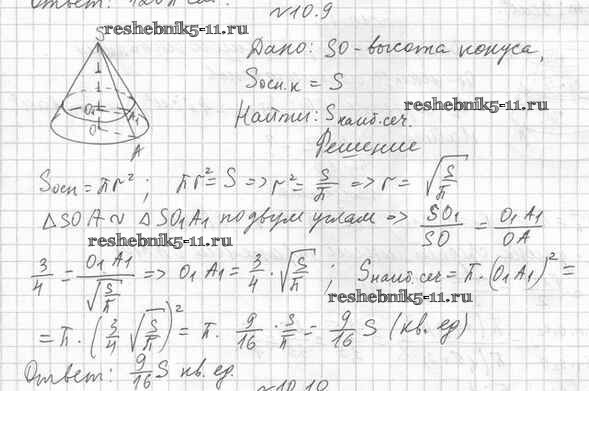 Ответ: 120π см².
№10.9
reshebnik5-11.ru
S
Дано: SO - высота конуса,
Sосн.к = S
reshebnik5-11.ru
Найти: Sнаиб.сеч.
O₁ A₁
O
A
Решение
Sосн = πr²; πr² = S => r² = S/π => r = √(S/π)
△SOA ~ △SO₁A₁ по двум углам => SO₁/SO = O₁A₁/OA
reshebnik5-11.ru
3/4 = O₁A₁/√(S/π) => O₁A₁ = 3/4 · √(S/π); Sнаиб.сеч = π · (O₁A₁)² =
reshebnik5-11.ru
= π · (3/4 √(S/π))² = π · 9/16 · S/π = 9/16 S (кв. ед)
Ответ: 9/16 S кв. ед.
№10.10